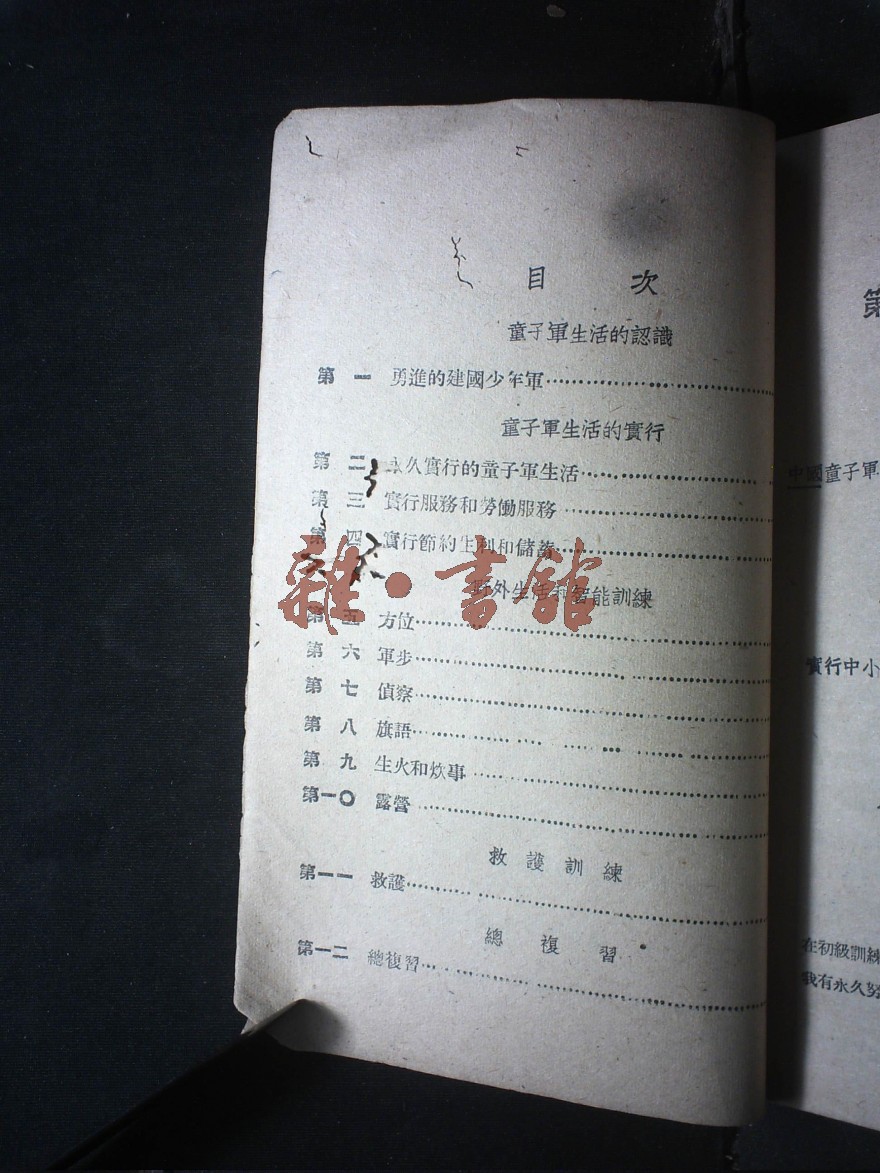 目 次
童子軍生活的認識
第 一 勇進的建國少年軍
童子軍生活的實行
第 二 永久實行的童子軍生活
第 三 實行服務和勞働服務
第 四 實行節約生利和儲蓄
野外生活和智能訓練
第 五 方位
第 六 軍步
第 七 偵察
第 八 旗語
第 九 生火和炊事
第一〇 露營
救 護 訓 練
第一一 救護
總 複 習
第一二 總複習
雜·書館
第
中國童子軍
實行中小
在初級訓練
我有永久努